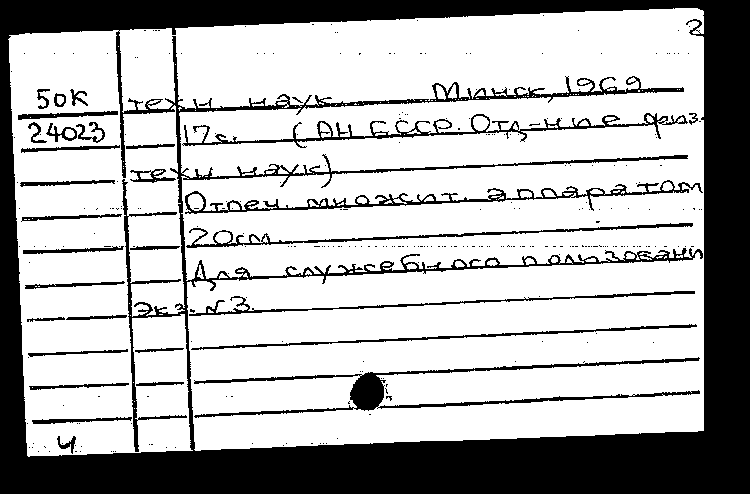 2
50К техн. наук. Минск, 1969
24023 17с. (АН БССР. Отд-ние физ.-
техн. наук)
Отпеч. множит. аппаратом
20см.
Для служебного пользовани
Экз. №3.
4